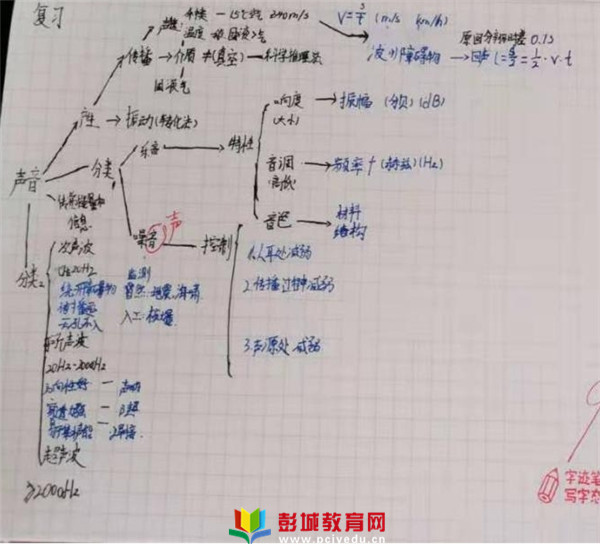 复习
声速 种类 — 15℃空气 340m/s
温度 固>液>气
V=S/t (m/s km/h)
原回分辨时差 0.1s
波 障碍物 → 回声 L=S/2=1/2·v·t
传播 → 介质 (真空) → 科学推理法
固液气
产生 → 振动(转化法)
声音
分类
乐音 → 特性
响度 → 振幅 (分贝)(dB)
(大小)
音调 → 频率f (赫兹)(Hz)
(高低)
音色 → 材料
结构
传递能量和
信息
噪音 声 — 控制
1.人耳处减弱
2.传播过程中减弱
3.声源处减弱
分类2
次声波
20Hz 监测
绕开障碍物 自然:地震,海啸
传播远
无孔不入 人工:核爆
可听声波
20Hz-20000Hz
方向性好
超声波
≥2000Hz
字迹笔
写字态
彭城教育网
www.pcjyedu.cn